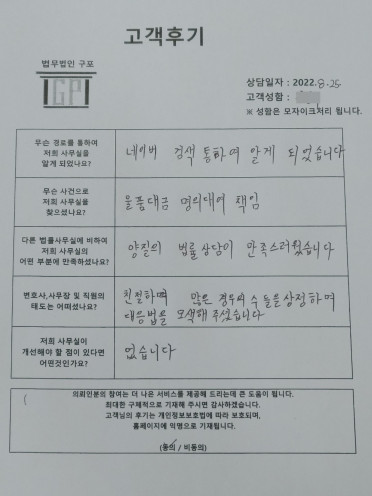 고객후기
법무법인 구포
GP
상담일자 : 2022. 8. 25
고객성함 :
※ 성함은 모자이크처리 됩니다.
무슨 경로를 통하여
저희 사무실을
알게 되었나요?
네이버 검색 통하여 알게 되었습니다
무슨 사건으로
저희 사무실을
찾으셨나요?
물품대금 명의대여 책임
다른 법률사무실에 비하여
저희 사무실의
어떤 부분에 만족하셨나요?
양질의 법률상담이 만족스러웠습니다
변호사,사무장 및 직원의
태도는 어떠셨나요?
친절하며 많은 경우의 수 들을 상정하며
대응법을 모색해 주셨습니다
저희 사무실이
개선해야 할 점이 있다면
어떤것인가요?
없습니다
의뢰인분의 참여는 더 나은 서비스를 제공해 드리는데 큰 도움이 됩니다.
최대한 구체적으로 기재해 주시면 감사하겠습니다.
고객님의 후기는 개인정보보호법에 따라 보호되며,
홈페이지에 익명으로 기재됩니다.
(동의 / 비동의)